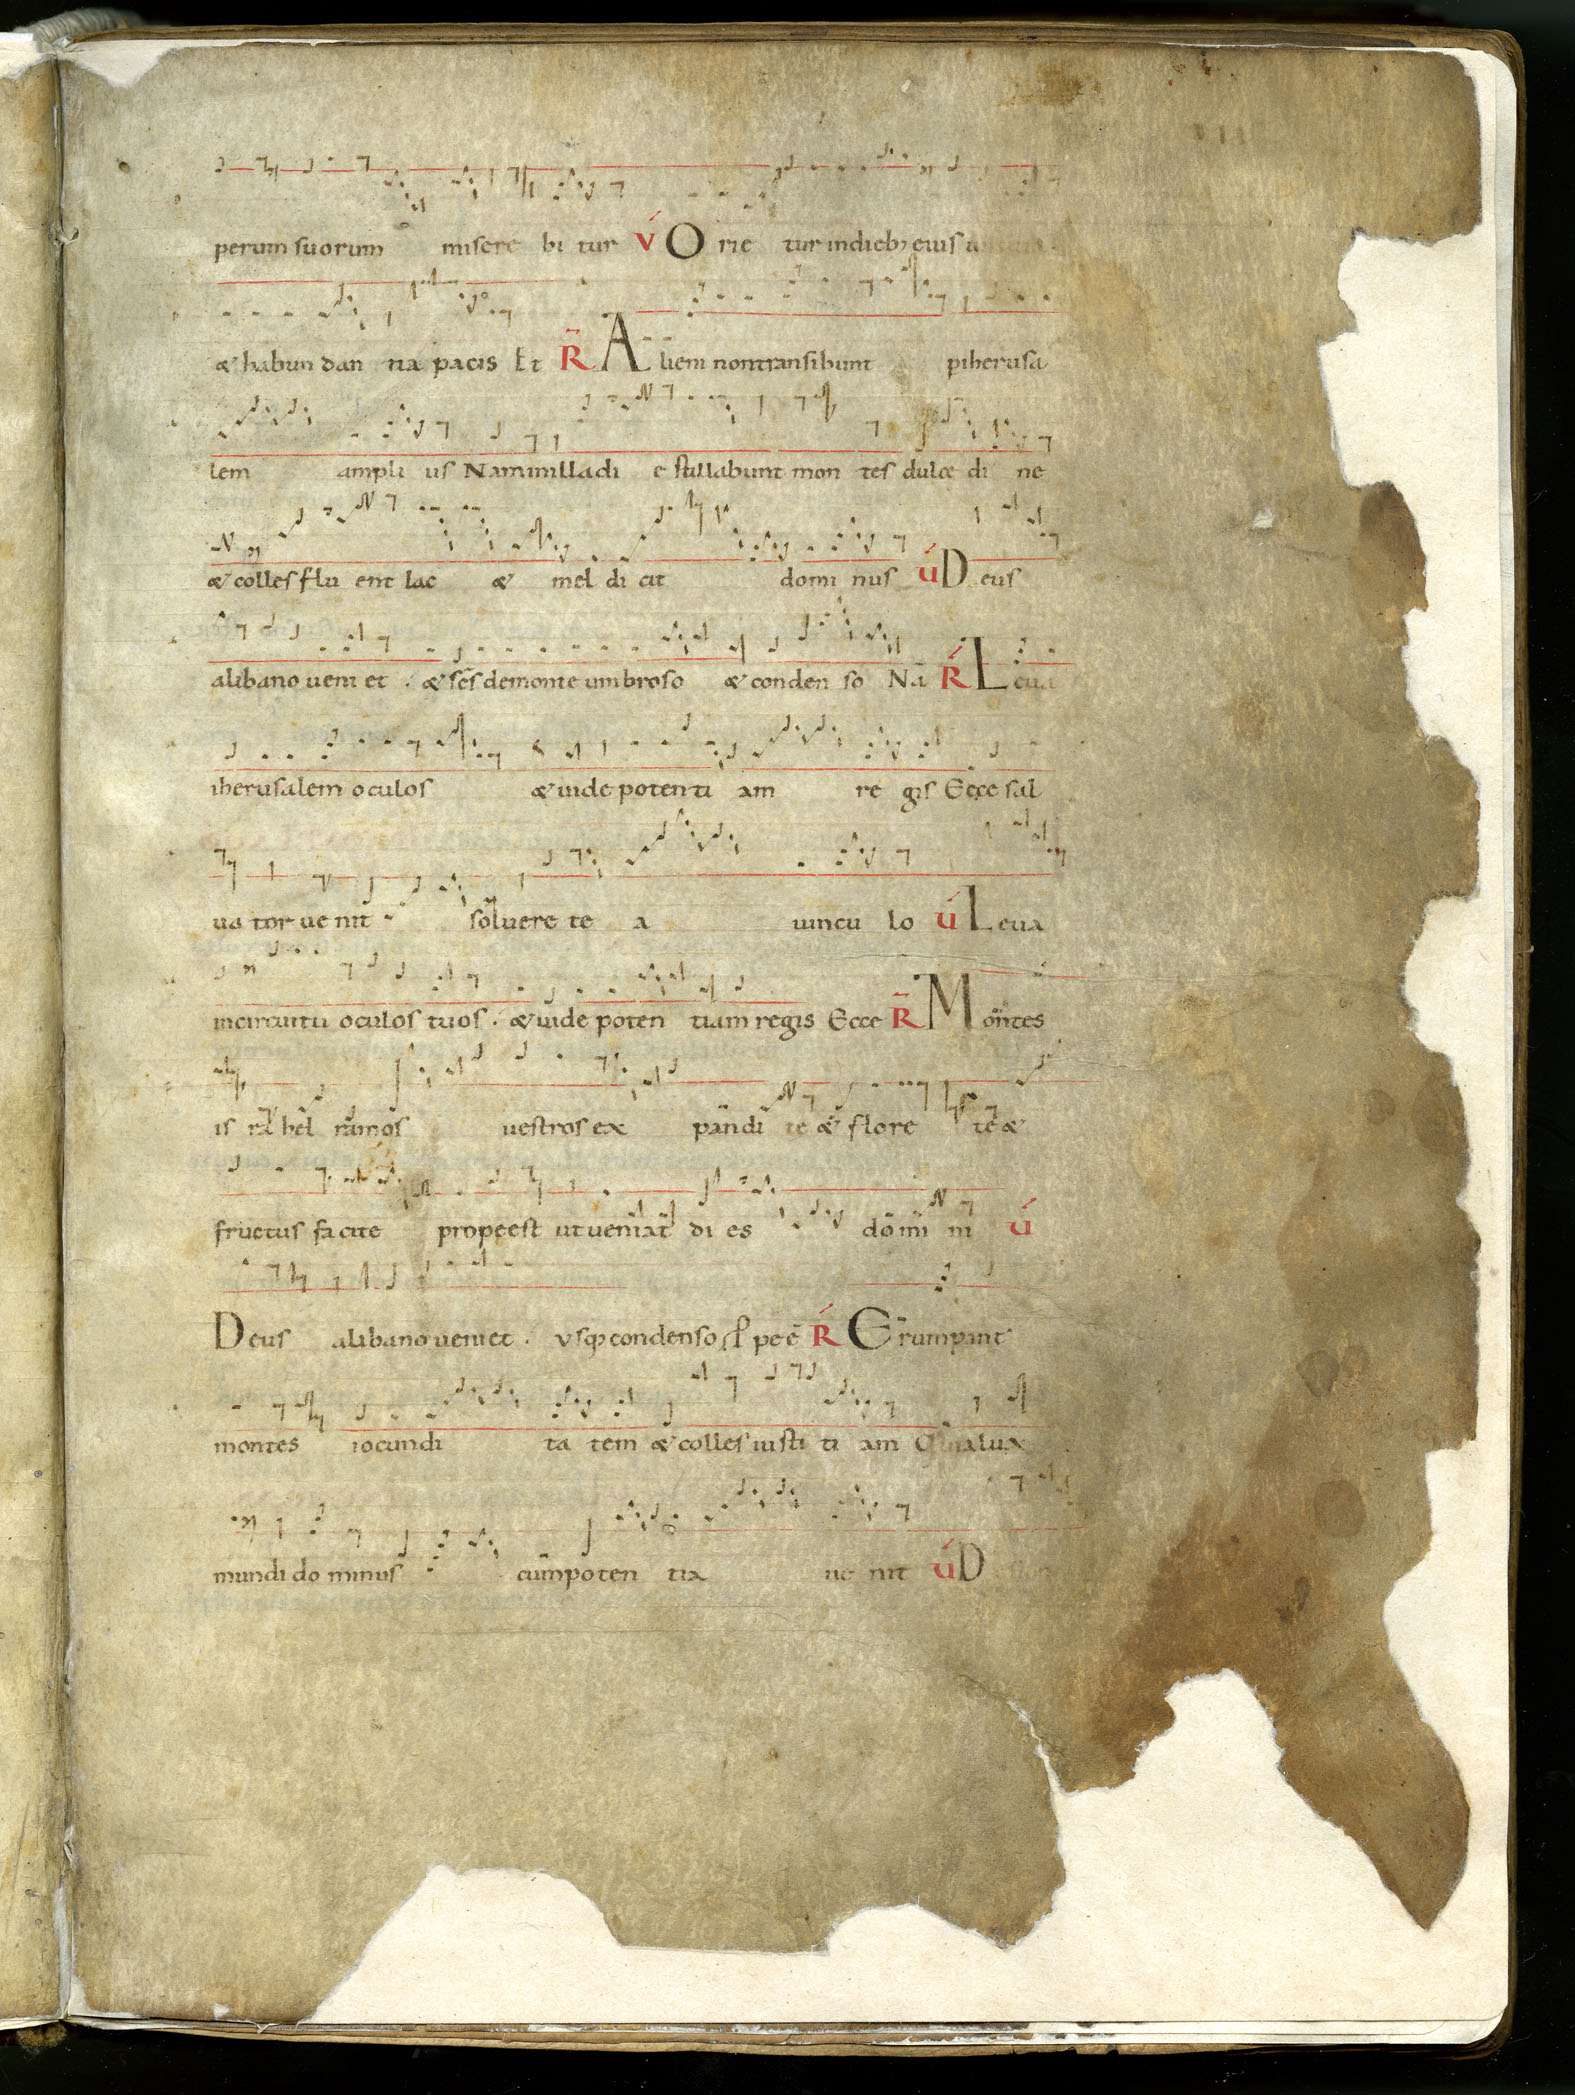 perum suorum misere bi tur V O rie tur in dieb; eius
& habun dan tia pacis Et R A lieni non transibunt p iherusa
lem ampli us Nam in illa di e stillabunt mon tes dulce di ne
& colles flu ent lac & mel di cit domi nus V D eus
a libano veni et . & scs de monte umbroso & conden so Na R L eua
iherusalem oculos & uide poten ti am re gis Ecce sal
ua tor ue nit soluere te a uincu lo V L eua
in circuitu oculos tuos . & uide poten tiam regis Ecce R M ontes
is ra hel ramos uestros ex pandi te & flore te &
fructus facite prope est ut ueniat di es domi ni V
D eus a libano ueniet . vsq; condenso pe ē R E rumpant
montes iocundi ta tem & colles iusti ti am Quia lux
mundi do minus cum poten tia ue nit V D